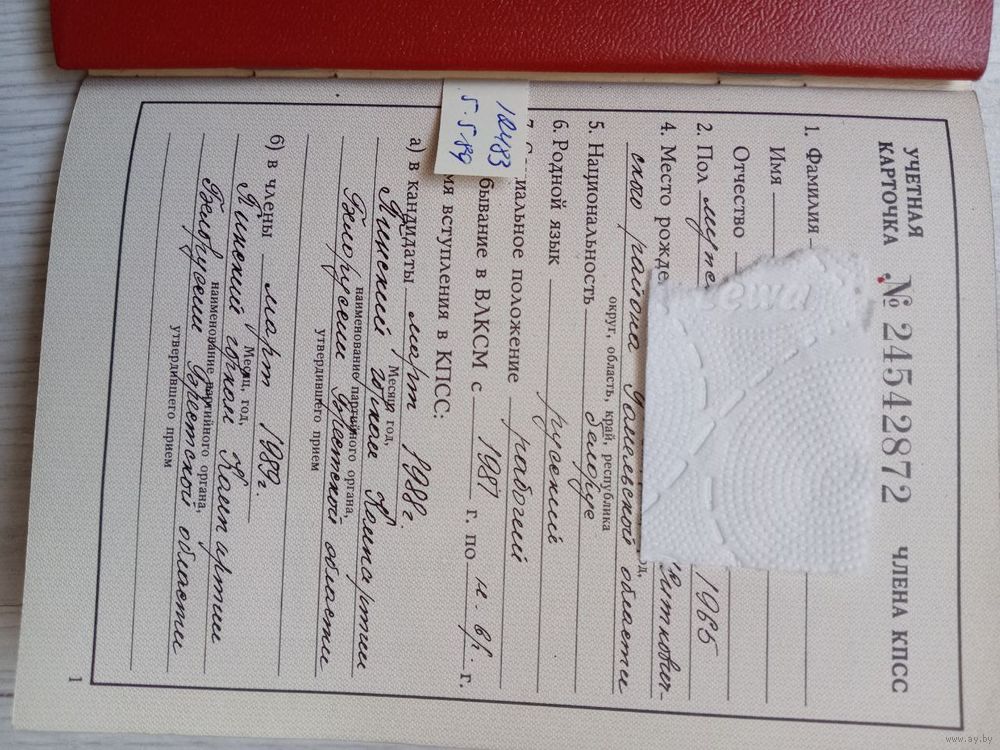 УЧЕТНАЯ
КАРТОЧКА № 24542872 ЧЛЕНА КПСС
1. Фамилия
Имя
Отчество
2. Пол 1965
4. Место рожде Житкович-
округ, область, край, республика
ского района Гомельской области
5. Национальность белорус
6. Родной язык русский
иальное положение рабочий
бывание в ВЛКСМ с 1981 г. по н. вр. г.
мя вступления в КПСС:
а) в кандидаты март 1988г.
Месяц, год,
Пинский горком Компартии
наименование партийного органа,
Белоруссии Брестской области
утвердившего прием
б) в члены март 1989г.
Месяц, год,
Пинский горком Компартии
наименование партийного органа,
Белоруссии Брестской области
утвердившего прием
1
12483
5.5.89
www.ay.by